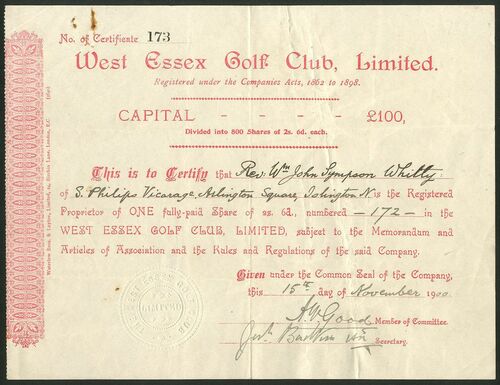 No. of Certificate 173
West Essex Golf Club, Limited.
Registered under the Companies Acts, 1862 to 1898.
CAPITAL - - - - £100,
Divided into 800 Shares of 2s. 6d. each.
This is to Certify that Rev: Wm John Sympson Whitty
of S. Philips Vicarage, Arlington Square, Islington N is the Registered
Proprietor of ONE fully-paid Share of 2s. 6d., numbered — 172 — in the
WEST ESSEX GOLF CLUB, LIMITED, subject to the Memorandum and
Articles of Association and the Rules and Regulations of the said Company.
Given under the Common Seal of the Company,
this 15th day of November 1900.
Good Member of Committee.
Secretary.
LIMITED
Waterlow Bros. & Layton, Limited, 24, Birchin Lane, London, E.C.